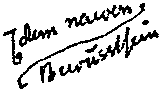 dem naiven
Bewusstsein